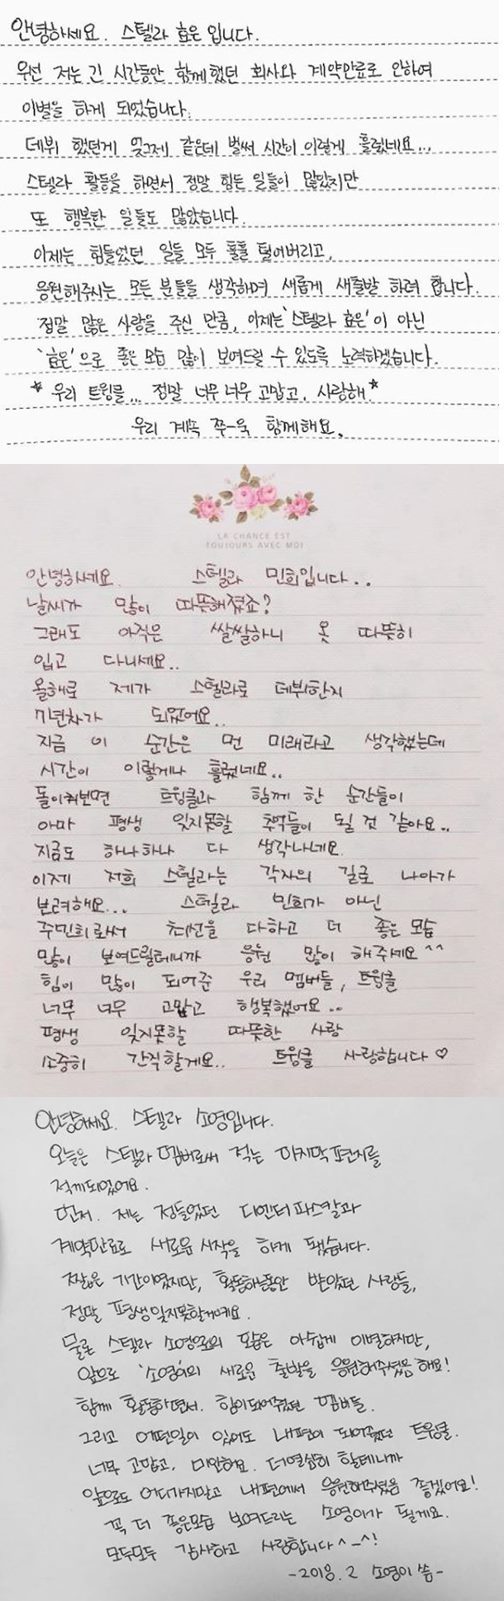 안녕하세요. 스텔라 효은 입니다.
우선 저는 긴 시간동안 함께했던 회사와 계약만료로 인하여
이별을 하게 되었습니다.
데뷔 했던게 엊그제 같은데 벌써 시간이 이렇게 흘렀네요...
스텔라 활동을 하면서 정말 힘든 일들이 많았지만
또 행복한 일들도 많았습니다.
이제는 힘들었던 일들 모두 훌훌 털어버리고,
응원해주시는 모든 분들을 생각하며 새롭게 새출발 하려 합니다.
정말 많은 사랑을 주신 만큼, 이제는 '스텔라 효은'이 아닌
'효은'으로 좋은 모습 많이 보여드릴 수 있도록 노력하겠습니다.
* 우리 트윙클... 정말 너무너무 고맙고, 사랑해*
우리 계속 쭈-욱 함께해요.
LA CHANCE EST
TOUJOURS AVEC MOI
안녕하세요. 스텔라 민희입니다..
날씨가 많이 따뜻해졌죠?
그래도 아직은 쌀쌀하니 옷 따뜻히
입고 다니세요..
올해로 제가 스텔라로 데뷔한지
7년차가 되었어요..
지금 이 순간은 먼 미래라고 생각했는데
시간이 이렇게나 흘렀네요..
돌이켜보면 트윙클과 함께 한 순간들이
아마 평생 잊지못할 추억들이 될 것 같아요..
지금도 하나하나 다 생각나네요.
이제 저희 스텔라는 각자의 길로 나아가
보려해요... 스텔라 민희가 아닌
주민희로서 최선을 다하고 더 좋은 모습
많이 보여드릴테니까 응원 많이 해주세요^^
힘이 많이 되어준 우리 멤버들, 트윙클
너무 너무 고맙고 행복했어요..
평생 잊지못할 따뜻한 사랑
소중히 간직할게요.. 트윙클 사랑합니다♡
안녕하세요. 스텔라 소영입니다.
오늘은 스텔라 멤버로써 적는 마지막 편지를
적게되었어요.
먼저. 저는 정들었던 디엔터파스칼과
계약만료로 새로운 시작을 하게 됐습니다.
짧은 기간이였지만, 활동하는동안 받았던 사랑들,
정말 평생잊지못할거에요.
물론 스텔라 소영으로의 모습은 아쉽게 이별하지만,
앞으로 '소영이'의 새로운 출발을 응원해주셨음해요!
함께 활동하면서. 힘이되어줬던 멤버들.
그리고 어떤일이 있어도 내편이 되어줬던 트윙클.
너무 고맙고, 미안해요. 더열심히 할테니까
앞으로도 어디가지말고 내편에서 응원해주셨음 좋겠어요!
꼭 더 좋은모습 보여드리는 소영이가 될게요.
모두모두 감사하고 사랑합니다^-^!
-2018. 2 소영이 씀-